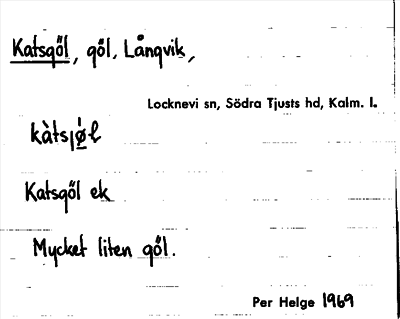 Katsgöl, göl, Långvik,
Locknevi sn, Södra Tjusts hd, Kalm. l.
kàtsjø̀l
Katsgöl ek
Mycket liten göl.
Per Helge 1969